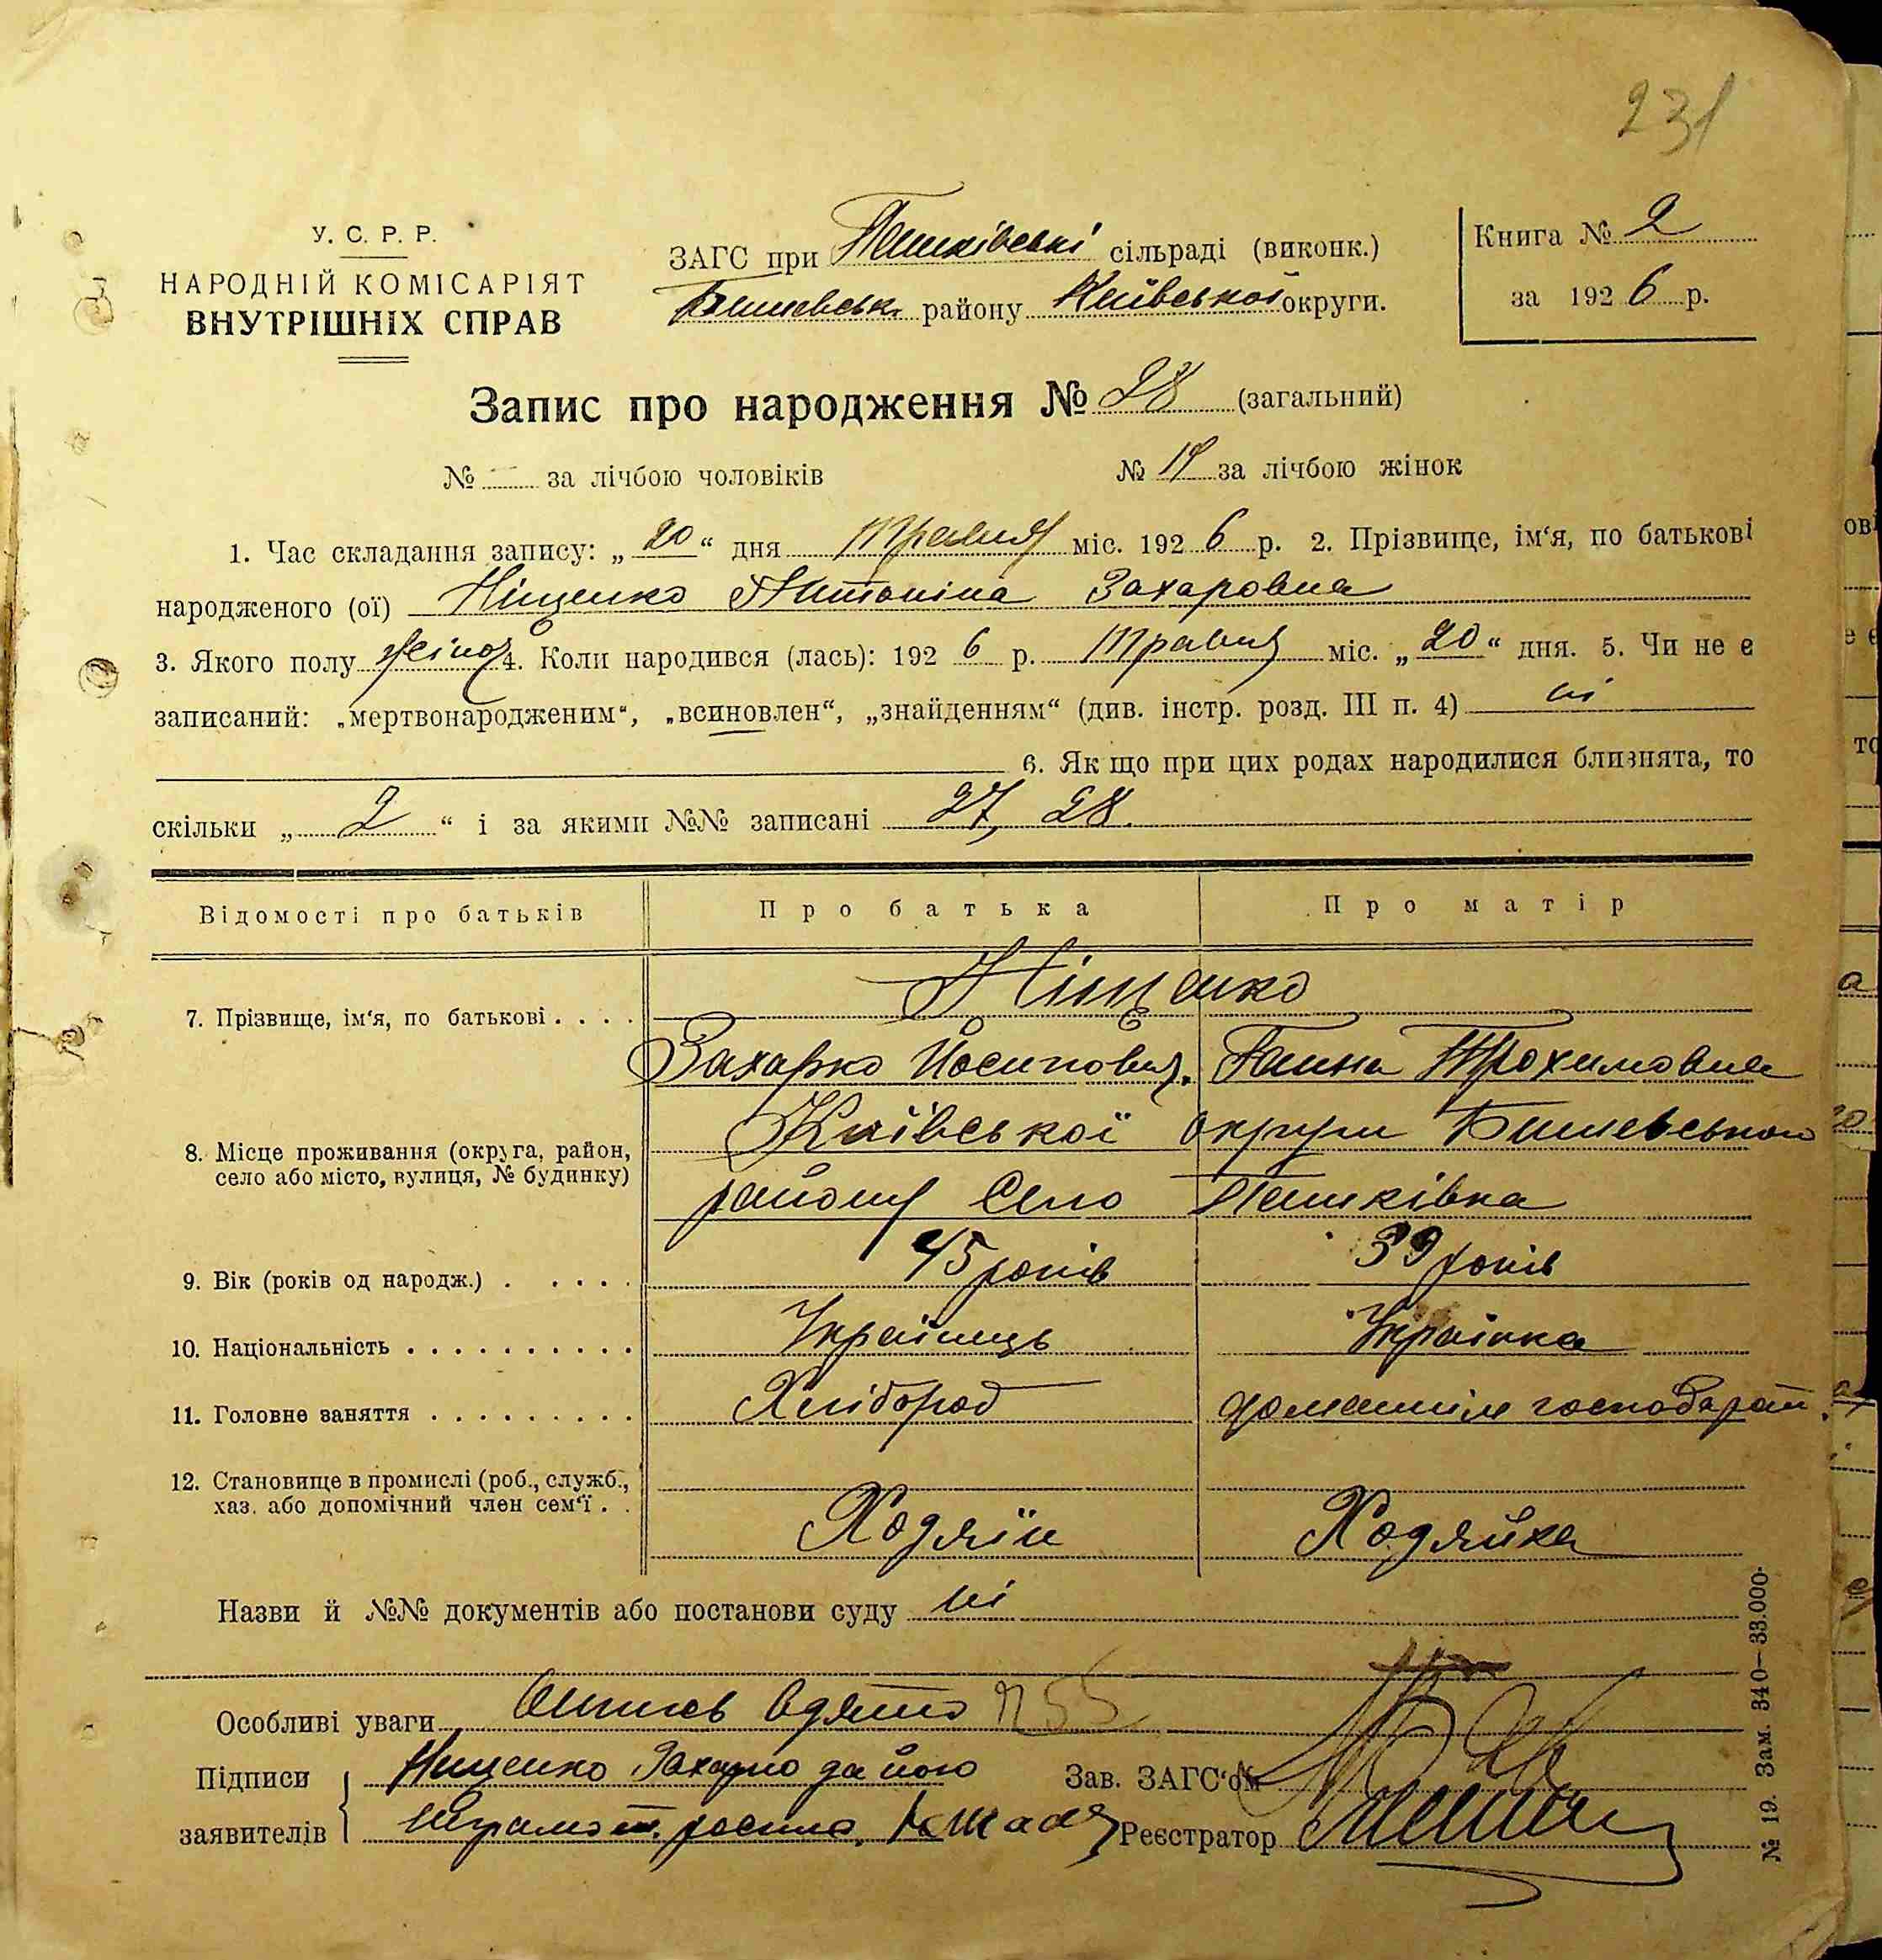 231
У. С. Р. Р.
НАРОДНІЙ КОМІСАРІЯТ
ВНУТРІШНІХ СПРАВ
ЗАГС при Пашківські сільраді (виконк.)
Бишевськ. району Київської округи.
Книга № 2
за 1926 р.
Запис про народження № 28 (загальний)
№ — за лічбою чоловіків № 19 за лічбою жінок
1. Час складання запису: „20“ дня Травня міс. 1926 р. 2. Прізвище, ім‘я, по батькові
народженого (ої) Ніщенко Антоніна Захаровна
3. Якого полу жіноч 4. Коли народився (лась): 1926 р. Травня міс. „20“ дня. 5. Чи не є
записаний: „мертвонародженим“, „всиновлен“, „знайденням“ (див. інстр. розд. III п. 4) ні
6. Як що при цих родах народилися близнята, то
скільки „2“ і за якими №№ записані 27, 28.
Відомості про батьків Про батька Про матір
7. Прізвище, ім‘я, по батькові . . . . Ніщенко
Захарко Йосипович. Ганна Трохимовна
8. Місце проживання (округа, район,
село або місто, вулиця, № будинку)
Київської округи Бишевського
району Село Пашківка
9. Вік (років од народж.) . . . . . 45 років 39 років
10. Національність . . . . . . . . . . Українець Українка
11. Головне заняття . . . . . . . . . Хлібороб домашнім господарст.
12. Становище в промислі (роб., служб.,
хаз. або допомічний член сем‘ї . .
Ходяїн Ходяйка
Назви й №№ документів або постанови суду ні
Особливі уваги одято 55
Підписи
заявителів
Нищенко Захарко за його
неграмотн. росписа.
Зав. ЗАГС‘ом
Реєстратор
№ 19. Зам. 340—33.000.